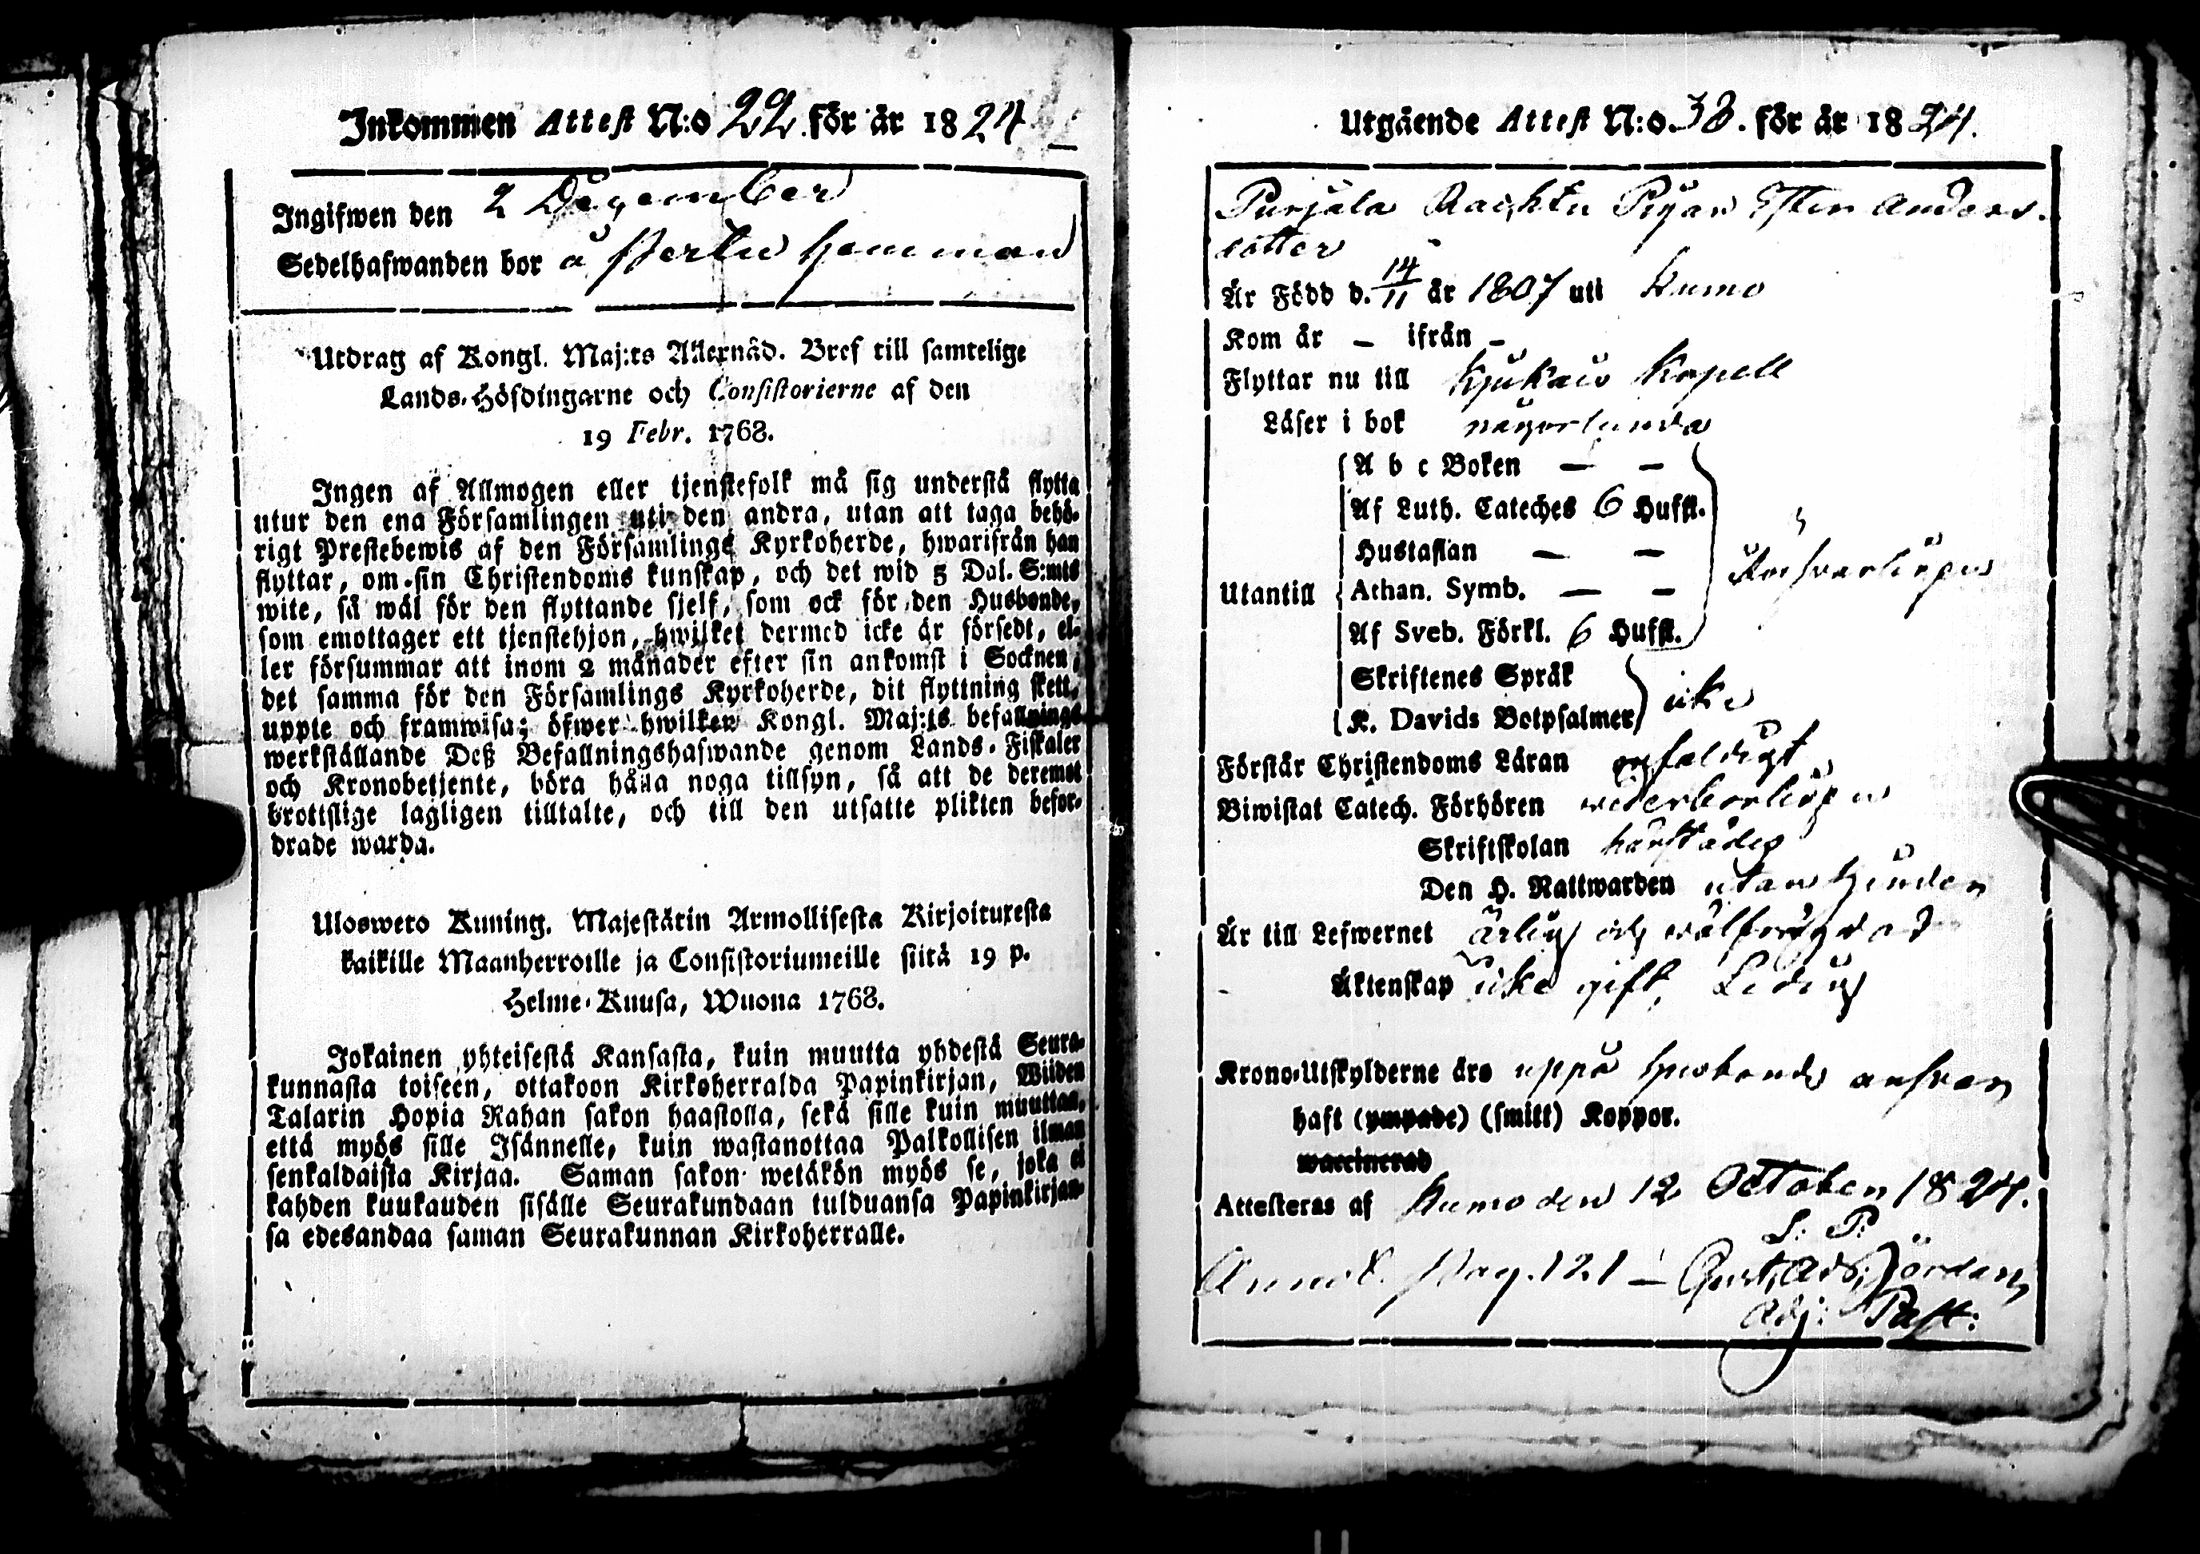 Inkommen Attest N:o 22. för år 1824
Ingifwen den 2 December
Sedelhafwanden bor å Hemman
Utdrag af Kongl. Maj:ts Allernåd. Bref till samtelige
Lands-Höfdingarne och Consistorierne af den
19 Febr. 1768.
Ingen af Allmogen eller tjenstefolk må sig understå flytta
utur den ena Församlingen uti den andra, utan att taga behö-
rigt Prestebewis af den Församlings Kyrkoherde, hwarifrån han
flyttar, om sin Christendoms kunskap, och det wid 5 Dal. S:mts
wite, så wäl för den flyttande sjelf, som ock för den Husbonde,
som emottager ett tjenstehjon, hwilket dermed icke är försedt, el-
ler försummar att inom 2 månader efter sin ankomst i Socknen,
det samma för den Församlings Kyrkoherde, dit flyttning skett,
uppte och framwisa; öfwer hwilken Kongl. Maj:ts befallnings
werkställande Deß Befallningshafwande genom Lands-Fiskaler
och Kronobetjente, böra hålla noga tillsyn, så att de deremot
brottslige lagligen tilltalte, och till den utsatte plikten befor-
drade warda.
Uloswero Kuning. Majestätin Armollisesta Kirjoituxesta
kaikille Maanherroille ja Consistoriumeille siitä 19 p.
Helme-Kuusa, Wuona 1768.
Jokainen yhteisestä Kansasta, kuin muutta yhdestä Seura-
kunnasta toiseen, ottakoon Kirkoherralda Papinkirjan, Wiiden
Talarin Hopia Rahan sakon haastolla, sekä sille kuin muuttaa,
että myös sille Isännelle, kuin wastanottaa Palkollisen ilman
senkaldaista Kirjaa. Saman sakon wetäkön myös se, joka ei
kahden kuukauden sisälle Seurakundaan tulduansa Papinkirjan-
sa edesandaa saman Seurakunnan Kirkoherralle.
Utgående Attest N:o 38. för år 1824.
Purjala Rachtu Pigan Ester Anders-
dotter
Är Född d. 14/11 år 1807 uti Kumo
Kom år – ifrån –
Flyttar nu till Kjukais Kapell
Läser i bok någorlunda
A b c Boken — —
Af Luth. Cateches 6 Hufst.
Hustaflan — —
Utantill Athan. Symb. — —
Af Sveb. Förkl. 6 Hufst.
Skriftenes Språk
K. Davids Botpsalmer icke
Förstår Christendoms Läran enfaldigt
Biwistat Catech. Förhören wederbörligen
Skriftskolan härstädes
Den H. Nattwarden utan hinder
Är till Lefwernet ärlig och wälfrägdad
Äktenskap icke gift, Ledig
Krono-Utskylderne äro uppå husbonds answar
haft (ympade) (smitt) Koppor.
waccinerad
Attesteras af Kumo den 12 October 1824.
L: P:
Pag. 121 – Gust. Ad. Hjördan
Adj: Past: